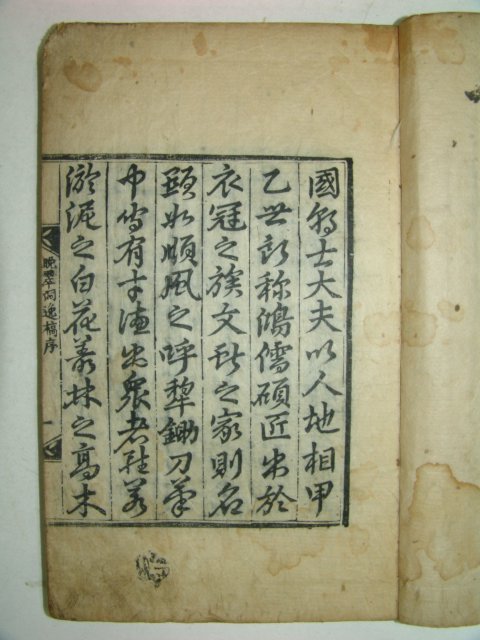 國朝士大夫以人地相甲
乙世所稱鴻儒碩匠出於
衣冠之族文獻之家則名
顯如順風之呼犁鋤刀筆
中有才德出衆者若
淤泥之白花叢林之高木
晩翠逸稿序
一